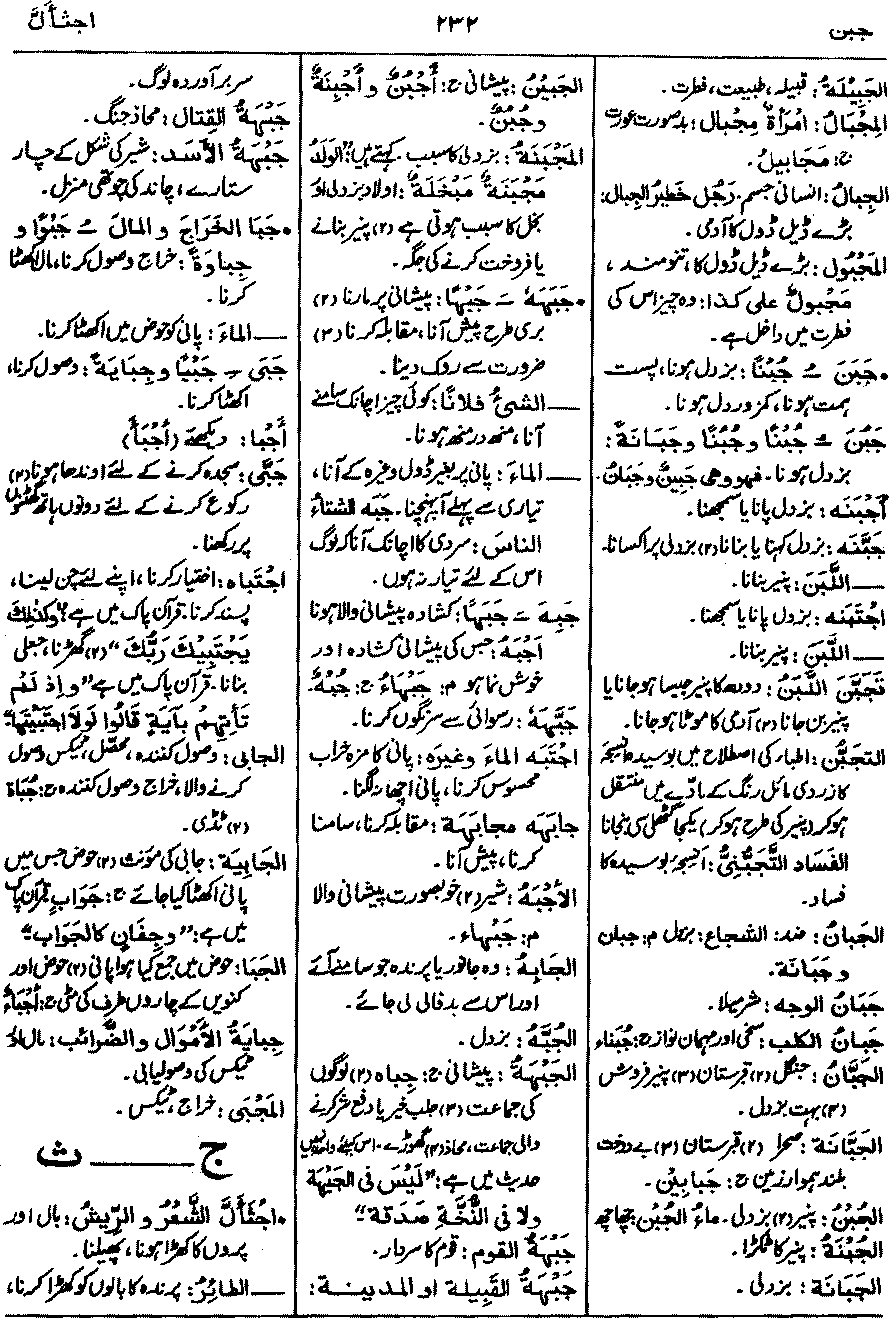 جبن
۲۳۲
اجثألّ
الجَبِيْلَةُ: قبیلہ، طبیعت، فطرت۔
المِجْبَالُ: امْرَأةٌ مِجْبال: بدصورت عورت
ج: مَجَابيلُ۔
الجِبالُ: انسانی جسم۔ رَجُل خَطيرُ الجِبال:
بڑے ڈیل ڈول کا آدمی۔
المَجْبُول: بڑے ڈیل ڈول کا، تنومند،
مَجْبولٌ على كذا: وہ چیز اس کی
فطرت میں داخل ہے۔
•جَبَنَ ـُ جُبْنًا: بزدل ہونا، پست
ہمت ہونا، کمزور دل ہونا۔
جَبُنَ ـُ جُبْنًا وجُبُنًا وجَبَانَةً:
بزدل ہونا۔ فهو وهى جَبِينٌ وجَبَانٌ۔
أجْبَنَه: بزدل پانا یا سمجھنا۔
جَبَّنَه: بزدل کہنا یا بنانا (۲) بزدلی پر اکسانا۔
ـــ اللَّبَنَ: پنیر بنانا۔
اجْتَبَنَه: بزدل پانا یا سمجھنا۔
ـــ اللَّبَنَ: پنیر بنانا۔
تَجَبَّنَ اللَّبَنُ: دودھ کا پنیر جیسا ہو جانا یا
پنیر بن جانا (۲) آدمی کا موٹا ہو جانا۔
التجبُّن: اطباء کی اصطلاح میں بوسیدہ انسجہ
کا زردی مائل رنگ کے مادّے میں منتقل
ہوکر (پنیر کی طرح ہوکر) یکجا گٹھلی سی بنجانا
الفَسَاد التَّجَبُّنِىُّ: انسجۂ بوسیدہ کا
فساد۔
الجَبانُ: ضد: الشجاع: بزدل م: جبان
و جَبَانَة۔
جَبَانُ الوجه: شرمیلا۔
جَبانُ الكلب: سخی اور مہمان نواز ج: جُبَناء
الجَبَّانُ: جنگل (۲) قبرستان (۳) پنیر فروش
(۴) بہت بزدل۔
الجَبَّانَة: صحرا (۲) قبرستان (۳) بے درخت
بلند ہموار زمین ج: جَبابِيْن۔
الجُبْنُ: پنیر (۲) بزدلی۔ ماءُ الجُبْن: چھاچھ
الجُبْنَةُ: پنیر کا ٹکڑا۔
الجَبَانَة: بزدلی۔
الجَبِيْنُ: پیشانی ج: أَجْبُنٌ و أجْبِنَةٌ
وجُبُنٌ۔
المَجْبَنَةُ: بزدلی کا سبب۔ کہتے ہیں: "الوَلَدُ
مَجْبَنَةٌ مَبْخَلَةٌ": اولاد بزدلی اور
بخل کا سبب ہوتی ہے (۲) پنیر بنانے
یا فروخت کرنے کی جگہ۔
•جَبَهَهٗ ـَ جَبْهًا: پیشانی پر مارنا (۲)
بری طرح پیش آنا، مقابلہ کرنا (۳)
ضرورت سے روک دینا۔
ـــ الشئُ فلانًا: کوئی چیز اچانک سامنے
آنا، منھ در منھ ہونا۔
ـــ الماءَ: پانی پر بغیر ڈول وغیرہ کے آنا،
تیاری سے پہلے آ پہنچنا۔ جَبَه الشتاءُ
الناسَ: سردی کا اچانک آنا کہ لوگ
اس کے لئے تیار نہ ہوں۔
جَبِهَ ـَ جَبَهًا: کشادہ پیشانی والا ہونا
أجْبَهُ: جس کی پیشانی کشادہ اور
خوش نما ہو م: جَبْهَاءُ ج: جُبْهٌ۔
جَبَّهَهٗ: رسوائی سے سرنگوں کرنا۔
اجْتَبَه الماءَ وغيرَه: پانی کا مزہ خراب
محسوس کرنا، پانی اچھا نہ لگنا۔
جابَهَه مجابَهَة: مقابلہ کرنا، سامنا
کرنا، پیش آنا۔
الأجْبَهُ: شیر (۲) خوبصورت پیشانی والا
م: جَبْهاء۔
الجَابِهُ: وہ جانور یا پرندہ جو سامنے آئے
اور اس سے بدفالی لی جائے۔
الجُبَّهُ: بزدل۔
الجَبْهَةُ: پیشانی ج: جِباه (۲) لوگوں
کی جماعت (۳) طلب خیر یا دفع شر کرنے
والی جماعت، محاذ (۴) گھوڑے۔ اس کیلئے واحد نہیں
حدیث میں ہے: "لَيْسَ فى الجَبْهَة
ولا فى النُّخَّةِ صَدَقة"
جَبْهَةُ القوم: قوم کا سردار۔
جَبْهَةُ القَبيلة او المدينة:
سر برآوردہ لوگ۔
جَبْهَةُ القِتال: محاذ جنگ۔
جَبْهَةُ الأسَد: شیر کی شکل کے چار
ستارے، چاند کی چوتھی منزل۔
•جَبَا الخَراجَ و المالَ ـُ جَبْوًا و
جِباوَةً: خراج وصول کرنا، مال اکھٹا
کرنا۔
ـــ الماءَ: پانی کو حوض میں اکھٹا کرنا۔
جَبَى ـِ جَبْيًا وجِبايَةً: وصول کرنا،
اکھٹا کرنا۔
أجْبا: دیکھئے (أجْبَأ)
جَبَّى: سجدہ کرنے کے لئے اوندھا ہونا (۲)
رکوع کرنے کے لئے دونوں ہاتھ گھٹنوں
پر رکھنا۔
اجْتَباه: اختیار کرنا، اپنے لئے چن لینا،
پسند کرنا۔ قرآن پاک میں ہے: "وكذٰلِكَ
يَجْتَبِيْكَ رَبُّكَ" (۲) گھڑنا، جعلی
بنانا۔ قرآن پاک میں ہے "وإذ لَمْ
تَأتِهِمْ بآيَةٍ قَالُوا لَولَا اجْتَبَيْتَهَا"
الجابى: وصول کنندہ، محصّل، ٹیکس وصول
کرنے والا، خراج وصول کنندہ ج: جُبَاة
(۲) ٹڈی۔
الجَابِيَة: جابی کی مؤنث (۲) حوض جس میں
پانی اکھٹا کیا جائے ج: جَوَابٍ قرآن پاک
میں ہے: "وجِفَانٍ كالجَوَاب"
الجَبَا: حوض میں جمع کیا ہوا پانی (۲) حوض اور
کنویں کے چاروں طرف کی مٹی ج: أَجْبَاءُ
جِبايَةُ الأَمْوَال والضَّرائب: مال اور
ٹیکس کی وصولیابی۔
المَجْبَى: خراج، ٹیکس۔
ج ـــــ ث
•اجْثَأَلَّ الشَّعْرُ و الرِّيشُ: بال اور
پروں کا کھڑا ہونا، پھیلنا۔
ـــ الطائِرُ: پرندہ کا بالوں کو کھڑا کرنا،